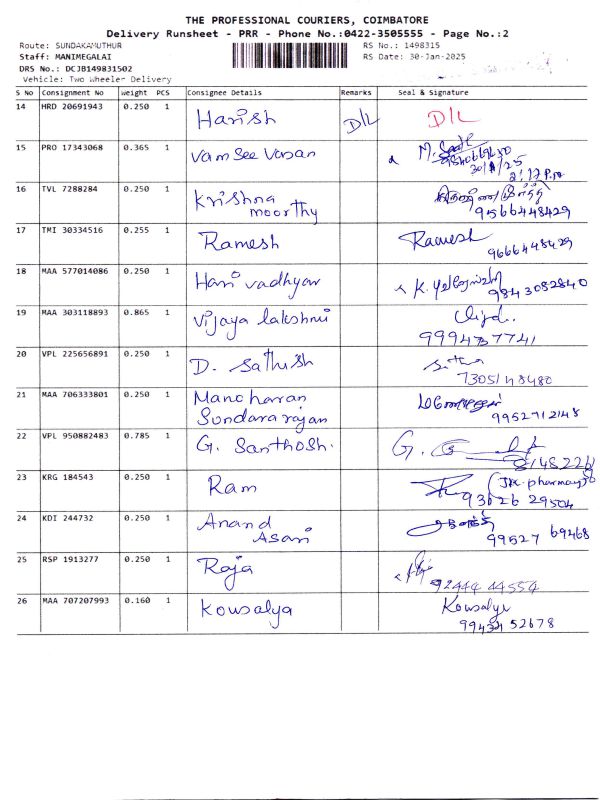 THE PROFESSIONAL COURIERS, COIMBATORE
Delivery Runsheet - PRR - Phone No.:0422-3505555 - Page No.:2
Route: SUNDAKAMUTHUR RS No.: 1498315
Staff: MANIMEGALAI RS Date: 30-Jan-2025
DRS No.: DCJB149831502
Vehicle: Two Wheeler Delivery
S No Consignment No Weight PCS Consignee Details Remarks Seal & Signature
14 HRD 20691943 0.250 1 Harish D/L D/L
15 PRO 17343068 0.365 1 Vamsee Vasan
30/1/25
2:17 P.M
16 TVL 7288284 0.250 1 Krishna
moorthy 9566448429
17 TMI 30334516 0.255 1 Ramesh Ramesh 9666448429
18 MAA 577014086 0.250 1 Hari vadhyar 9843082840
19 MAA 303118893 0.865 1 Vijaya lakshmi
20 VPL 225656891 0.250 1 D. Sathish
21 MAA 706333801 0.250 1 Manoharan
Sundararajan 9952712148
22 VPL 950882483 0.785 1 G. Santhosh. G.
23 KRG 184543 0.250 1 Ram
24 KDI 244732 0.250 1 Anand
Asari 99527 69468
25 RSP 1913277 0.250 1 Raja
92444 44554
26 MAA 707207993 0.160 1 Kousalya Kousalya